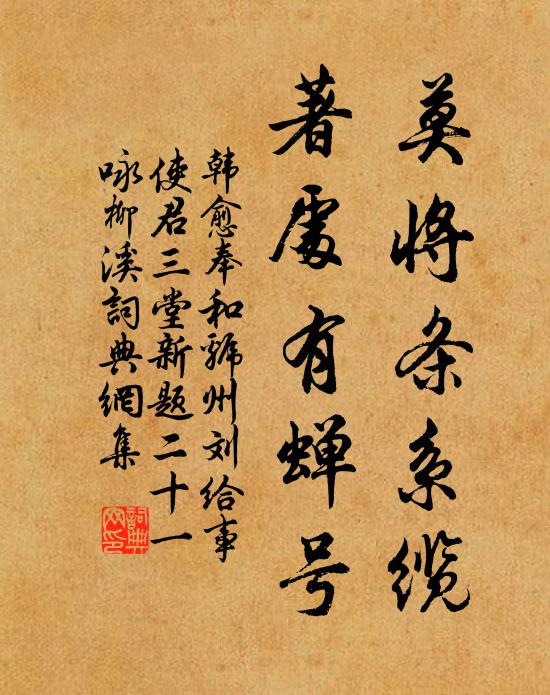 莫将条系缆
著处有蝉号
韩愈奉和虢州刘给事
使君三堂新题二十一
咏柳溪词典网集